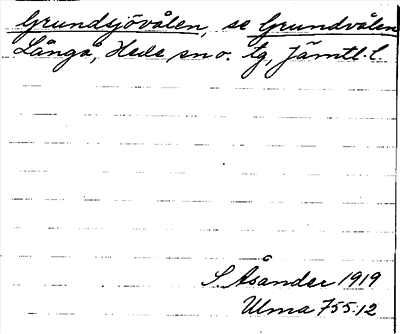 Grundsjövålen, se Grundvålen
Långå, Hede sn o. tg, Jämtl. l.
S. Åsander 1919
Ulma 755:12